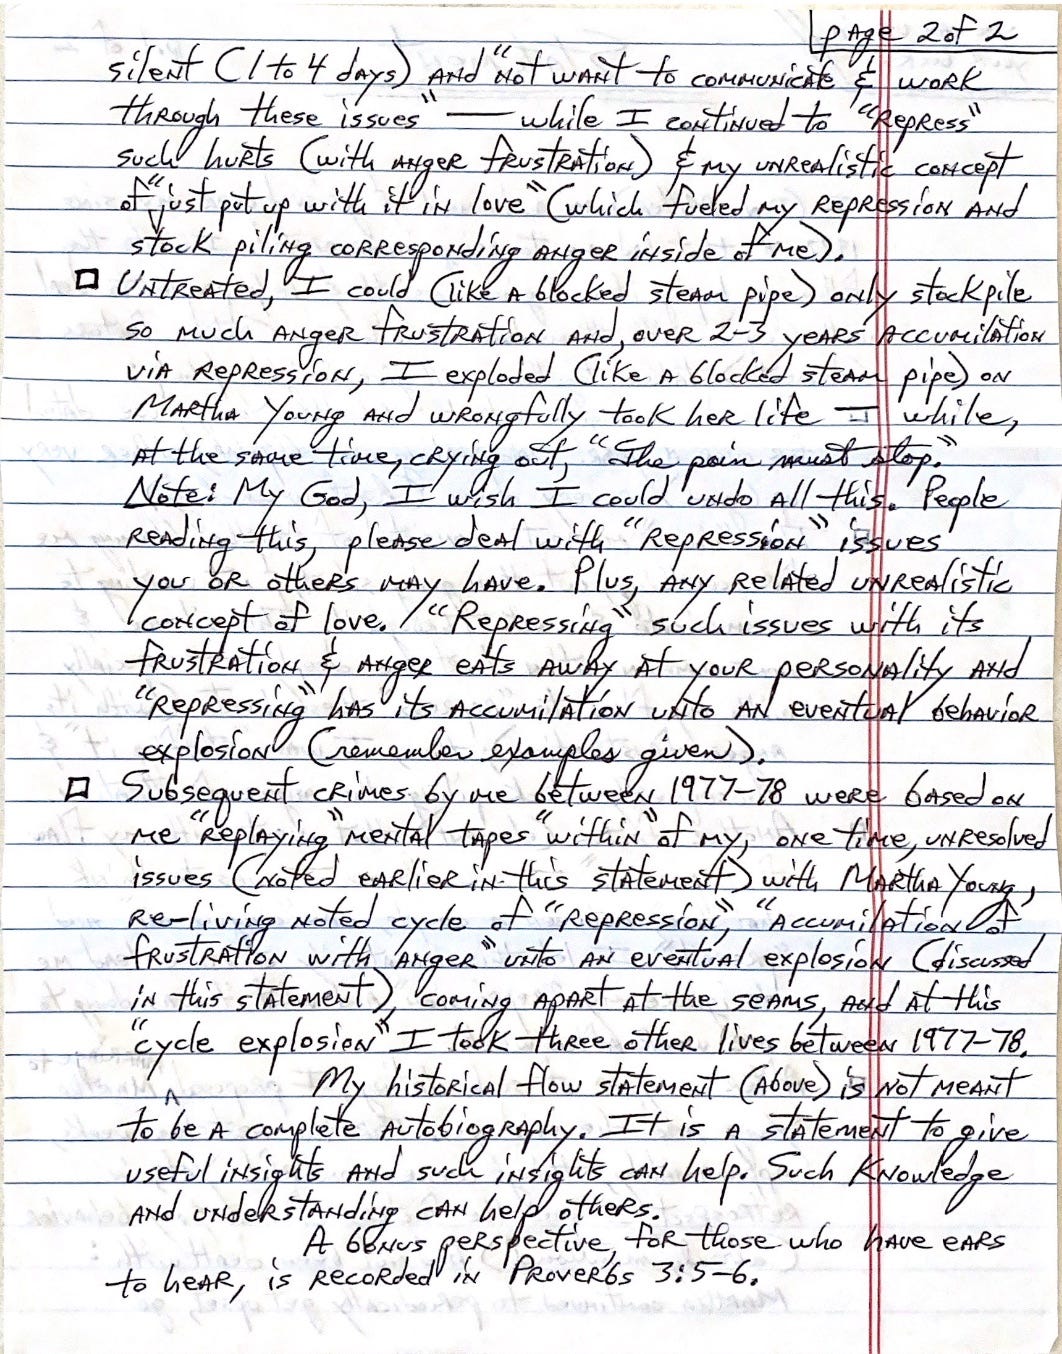 page 2 of 2
silent (1 to 4 days) and "not want to communicate & work
through these issues" — while I continued to "repress"
such hurts (with anger frustration) & my unrealistic concept
of "just put up with it in love" (which fueled my repression and
stock piling corresponding anger inside of me).
□ Untreated, I could (like a blocked steam pipe) only stockpile
so much anger frustration and, over 2-3 years accumilation
via repression, I exploded (like a blocked steam pipe) on
Martha Young and wrongfully took her life — while,
at the same time, crying out, "The pain must stop."
Note: My God, I wish I could undo all this. People
reading this, please deal with "Repression" issues
you or others may have. Plus, any related unrealistic
concept of love. "Repressing" such issues with its
frustration & anger eats away at your personality and
"Repressing" has its accumilation unto an eventual behavior
explosion (remember examples given).
□ Subsequent crimes by me between 1977-78 were based on
me "replaying" mental tapes "within" of my, one time, unresolved
issues (noted earlier in this statement) with Martha Young,
re-living noted cycle of "repression," "accumilation of
frustration with anger" unto an eventual explosion (discussed
in this statement), coming apart at the seams, and at this
"cycle explosion" I took three other lives between 1977-78.
^ My historical flow statement (above) is not meant
to be a complete autobiography. It is a statement to give
useful insights and such insights can help. Such knowledge
and understanding can help others.
A bonus perspective, for those who have ears
to hear, is recorded in Proverbs 3:5-6.